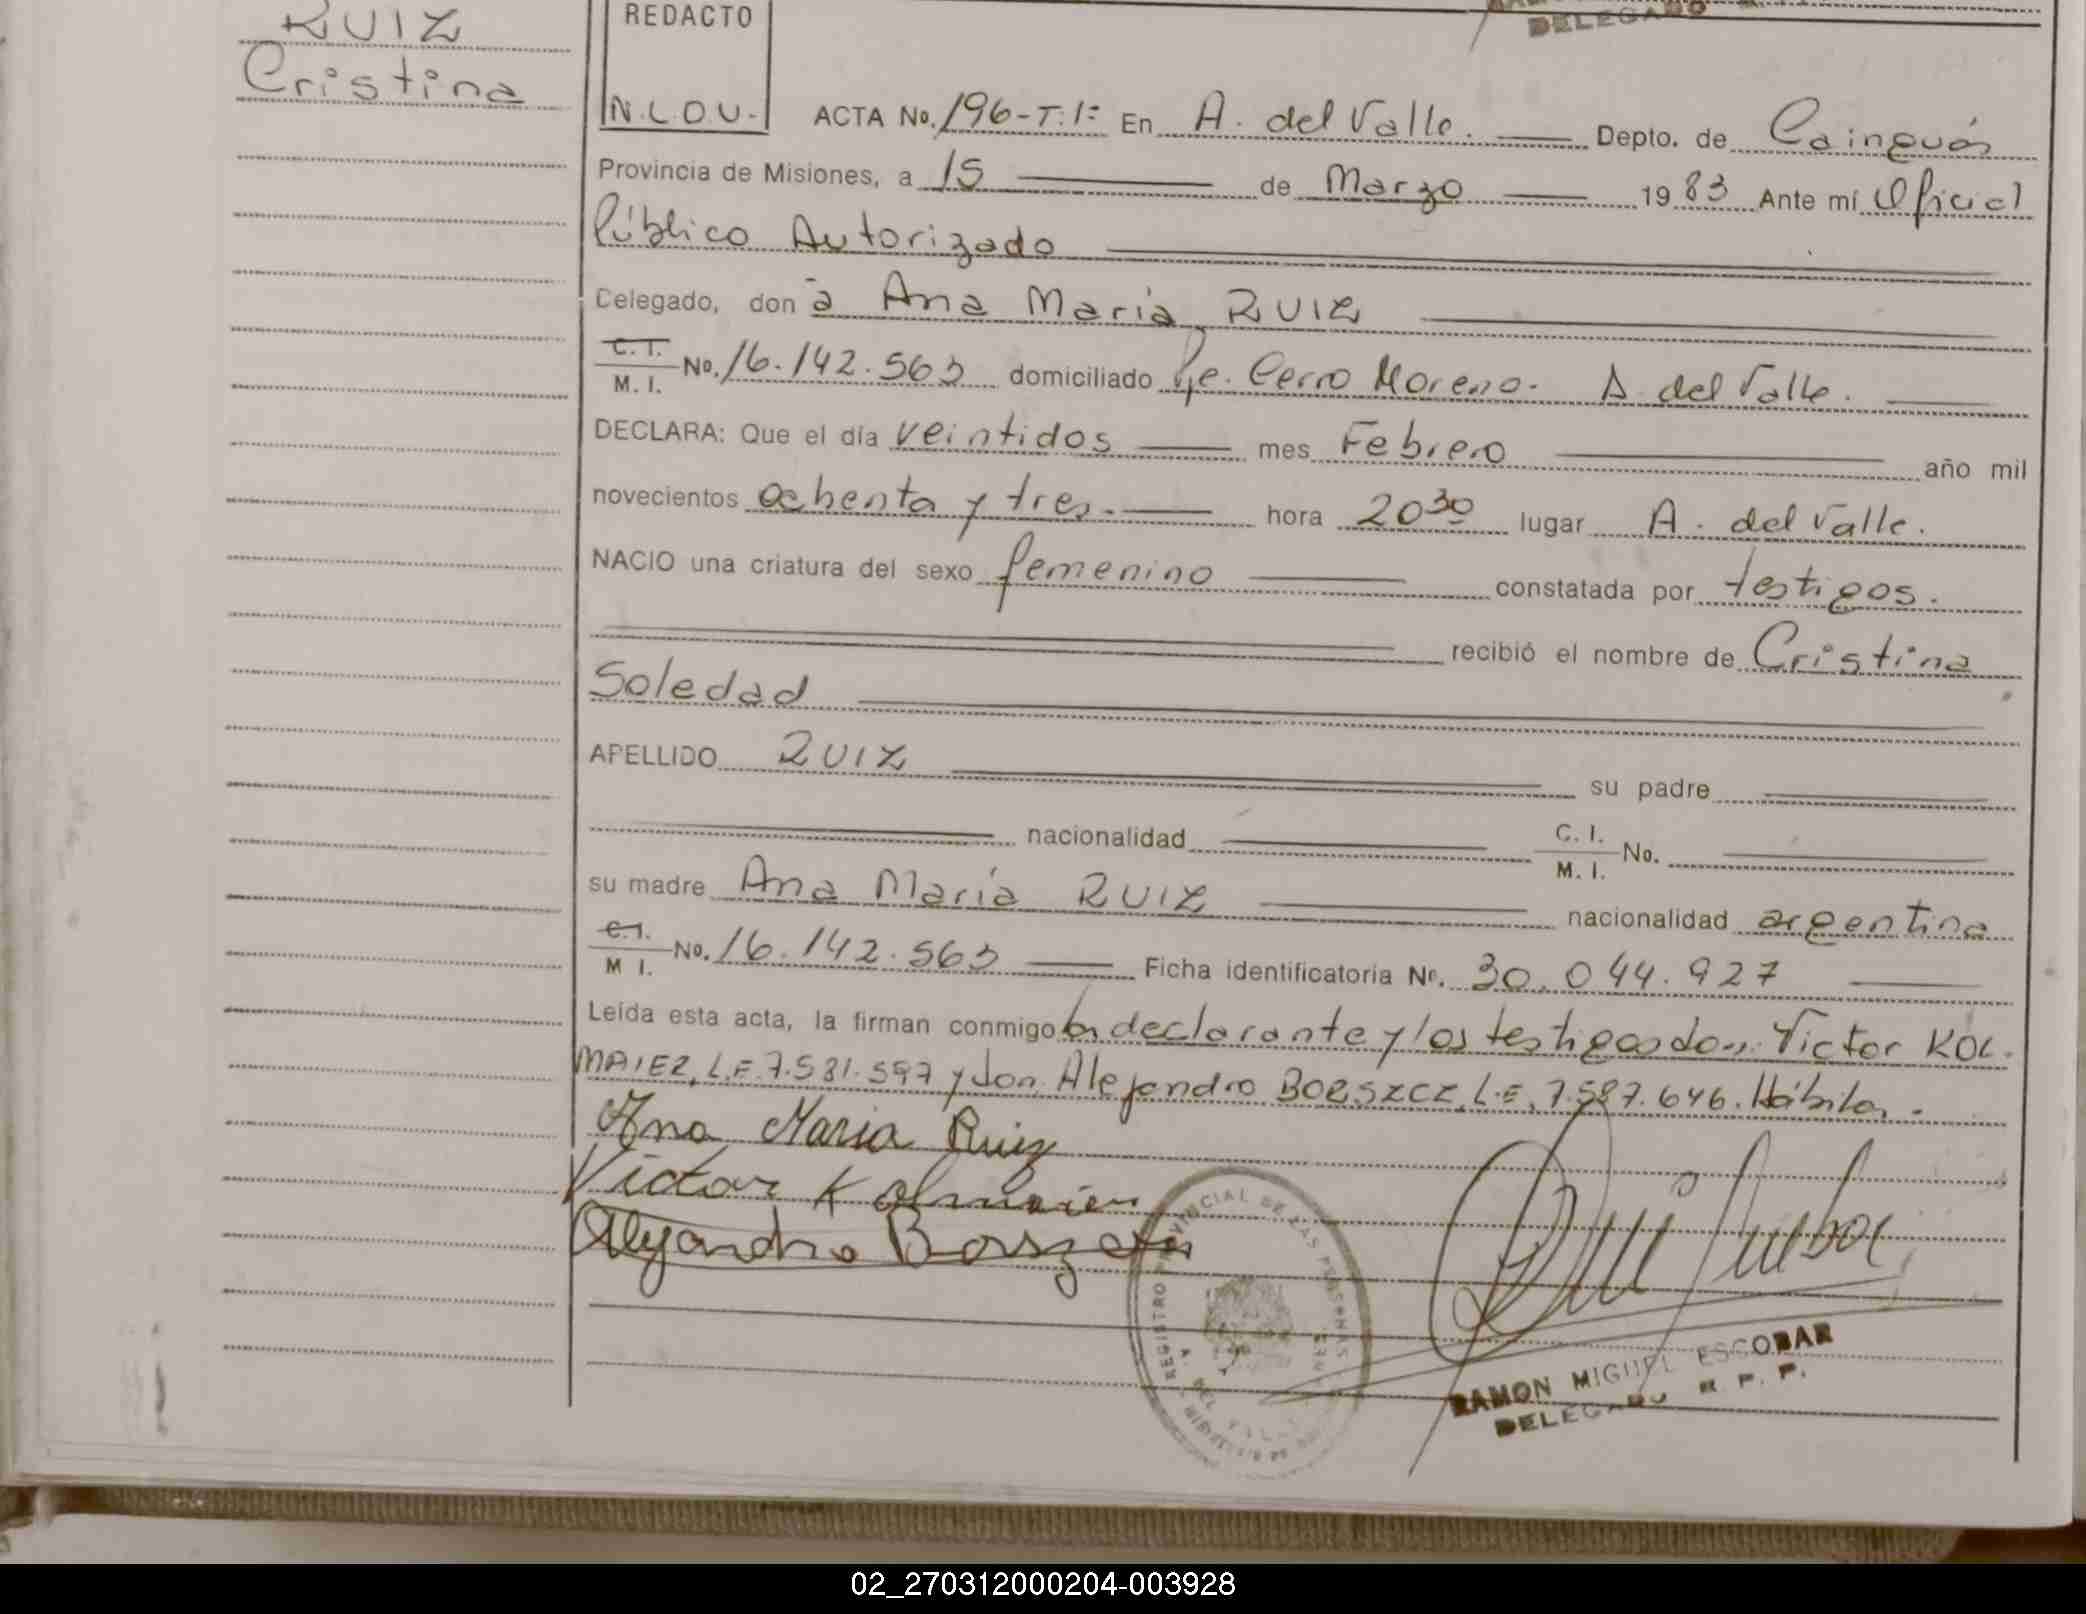 RUIZ
Cristina
REDACTO
N.L.O.U.
DELEGADO
ACTA No. 196-T:1º En A. del Valle. Depto. de Cainguás
Provincia de Misiones, a 15 de Marzo 1983 Ante mí Oficial
Público Autorizado
Celegado, don a Ana María RUIZ
C.I. M.I. No. 16.142.563 domiciliado Pje. Cerro Moreno. A. del Valle.
DECLARA: Que el día veintidos mes Febrero año mil
novecientos ochenta y tres. hora 20 30 lugar A. del Valle.
NACIO una criatura del sexo femenino constatada por testigos.
recibió el nombre de Cristina
Soledad
APELLIDO RUIZ su padre
nacionalidad C.I. M.I. No.
su madre Ana María RUIZ nacionalidad argentina
C.I. M I. No. 16.142.563 Ficha identificatoria Nº. 30.044.927
Leída esta acta, la firman conmigo la declarante y los testigos don: Victor KOL
MAIEZ, L.E. 7.581.597 y don Alejandro BORSZCZ, L.E. 7.587.646. Hábiles.
Ana Maria Ruiz
Victor
Alejandro
REGISTRO PROVINCIAL DE LAS PERSONAS
RAMON MIGUEL ESCOBAR
DELEGADO R. P. P.
02_270312000204-003928